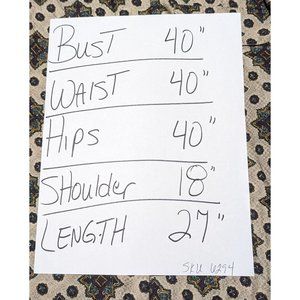 BUST 40"
WAIST 40"
HIPS 40"
SHoulder 18"
LENGTH 27"
SKU 6294